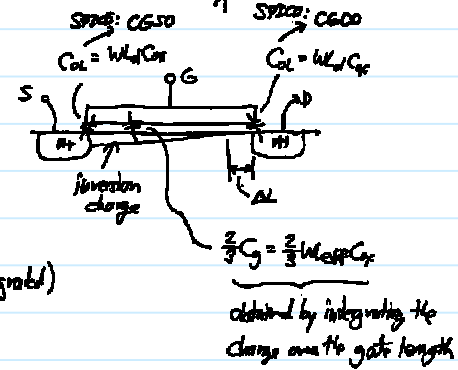 SPICE: CGSO
SPICE: CGDO
C_OL = WL_dC_ox
C_OL = WL_dC_ox
G
S
D
n+
n+
inversion
charge
ΔL
2/3 C_g = 2/3 WL_effC_ox
grated)
obtained by integrating the
charge over the gate length